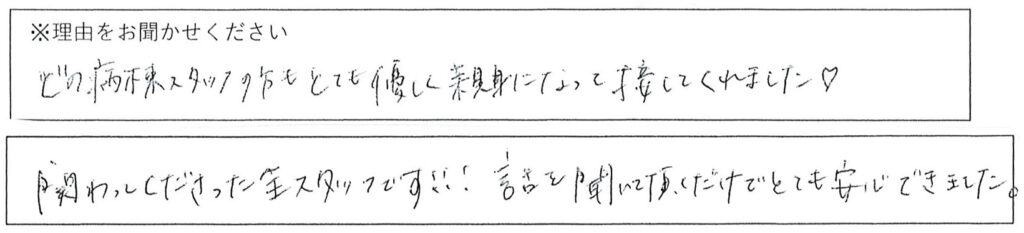 ※理由をお聞かせください
どの病棟スタッフの方もとても優しく親身になって接してくれました♡
関わってくださった全スタッフです!!! 話を聞いて頂くだけでとても安心できました。